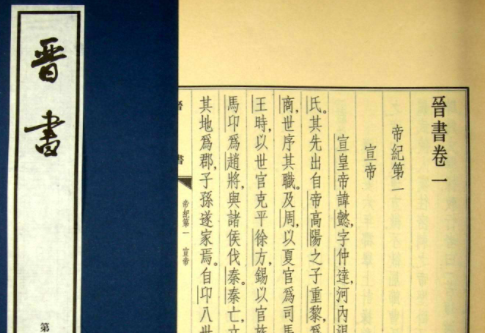 晉書
第
晉書卷一
帝紀第一
宣帝
宣皇帝諱懿，字仲達，河內溫
氏。其先出自帝高陽之子重黎，爲
南，世序其職。及周，以夏官爲司馬
王時，以世官克平徐方，錫以官族
馬卬爲趙將，與諸侯伐秦。秦亡，立
其地爲郡，子孫遂家焉。自卬八世
晉書
帝紀第一 宣帝